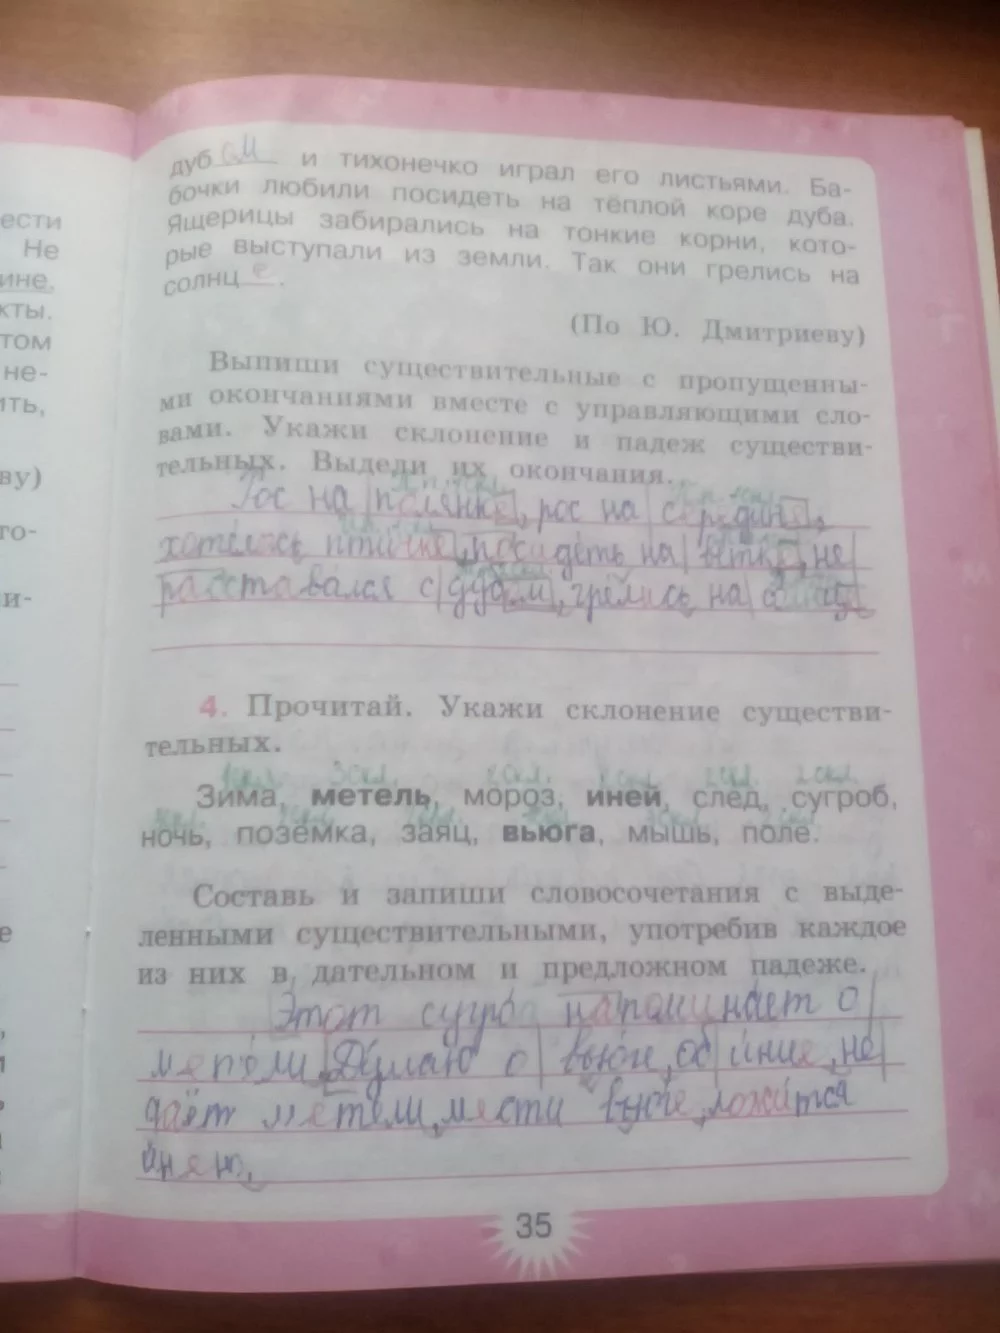 ести
Не
ине,
кты.
том
не-
ить,
ву)
го-
и-
е
дуб ом и тихонечко играл его листьями. Ба-
бочки любили посидеть на тёплой коре дуба.
Ящерицы забирались на тонкие корни, кото-
рые выступали из земли. Так они грелись на
солнц е .
(По Ю. Дмитриеву)
Выпиши существительные с пропущенны-
ми окончаниями вместе с управляющими сло-
вами. Укажи склонение и падеж существи-
тельных. Выдели их окончания.
Рос на полянке, рос на середине,
хотелось птичке, посидеть на ветке, не
расставался с дубом, грелись на
4. Прочитай. Укажи склонение существи-
тельных.
1 скл. 3 скл. 2 скл. 2 скл. 2 скл. 2 скл.
Зима, метель, мороз, иней, след, сугроб,
ночь, позёмка, заяц, вьюга, мышь, поле.
Составь и запиши словосочетания с выде-
ленными существительными, употребив каждое
из них в дательном и предложном падеже.
Этот сугроб напоминает о
метели. Думаю о вьюге, об инее, не
даёт метели, мести вьюге, ложится
инею.
35